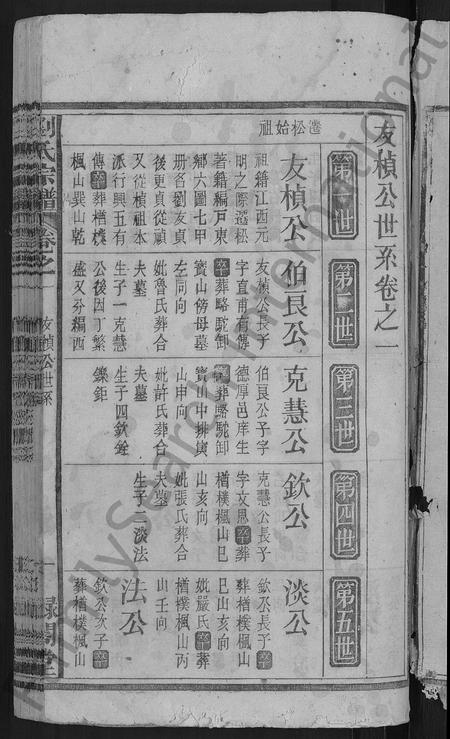 友楨公世系卷之一
第一世
第二世
第三世
第四世
第五世
遷松始祖
友楨公
祖籍江西元
明之際遷松
著籍編戶東
鄉六圖七甲
冊名劉友貞
後更貞從禎
又從楨祖本
派行興五有
傳卒葬楢樸
楓山巽山乾
伯良公
友楨公長子
字直甫有傳
卒葬略駝卸
寶山傍母墓
左同向
妣魯氏葬合
夫墓
生子一克慧
公後因丁繁
盛又分編西
克慧公
伯良公子字
德厚邑庠生
葬略駝卸
寶山中排寅
山申向
妣許氏葬合
夫墓
生子四欽銓
鑠鉅
欽公
克慧公長子
字文思卒葬
楢樸楓山巳
山亥向
妣張氏葬合
夫墓
生子二淡法
淡公
欽公長子卒
葬楢樸楓山
巳山亥向
妣嚴氏卒葬
楢樸楓山丙
山壬向
法公
欽公次子卒
葬楢樸楓山
劉氏宗譜
卷之一
友楨公世系
一
FamilySearch International